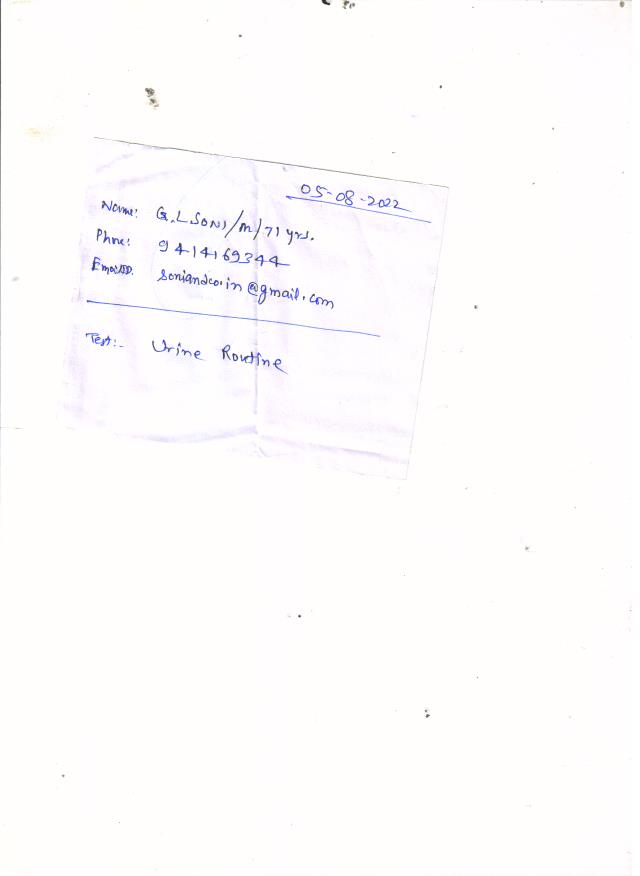 05-08-2022
Name: G.L SONI/M/71 yrs.
Phne: 9414169344
EmailID. soniandco.in@gmail.com
Test:- Urine Routine